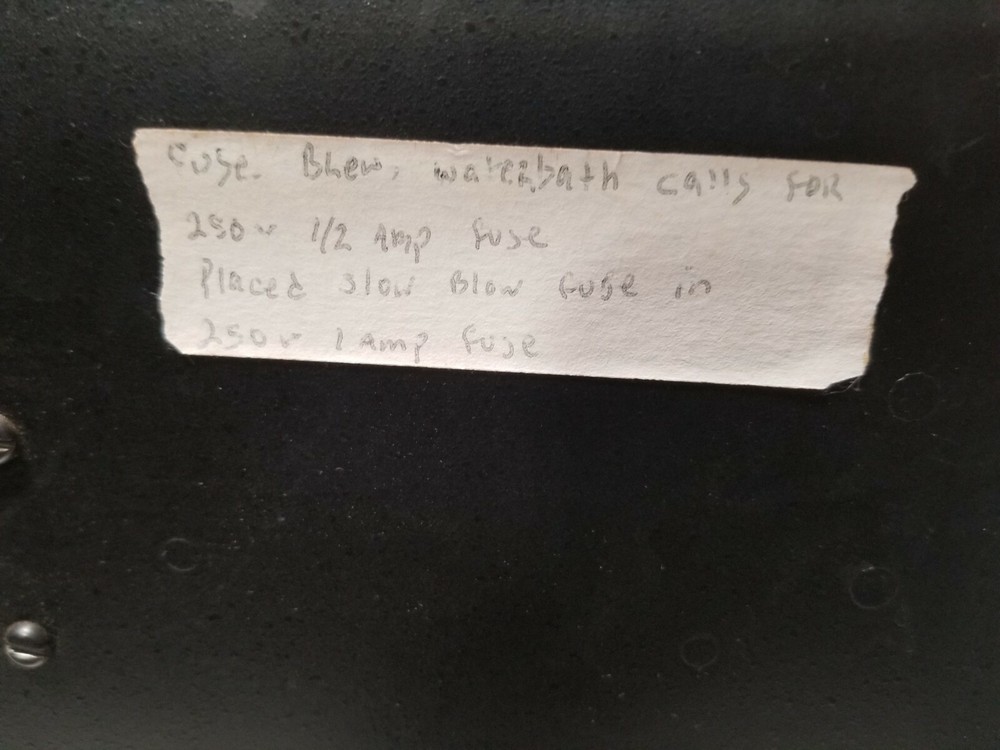 Fuse. Blew, waterbath calls FOR
250v 1/2 Amp fuse
Placed slow Blow fuse in
250v 1 Amp fuse